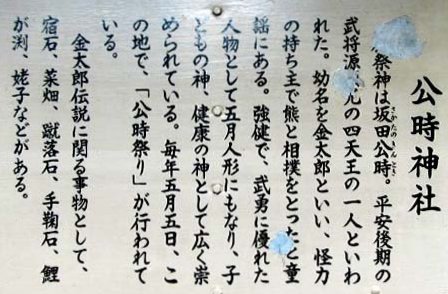 公時神社
祭神は坂田公時。平安後期の
さかたのきんとき
武将源 光の四天王の一人といわ
れた。幼名を金太郎といい、怪力
の持ち主で熊と相撲をとった 童
謡にある。強健で、武勇に優れた
人物として五月人形にもなり、子
どもの神、健康の神として広く崇
められている。毎年五月五日、こ
の地で、「公時祭り」が行われて
いる。
金太郎伝説に関る事物として、
宿石、菜畑、蹴落石、手鞠石、鯉
が渕、姥子などがある。